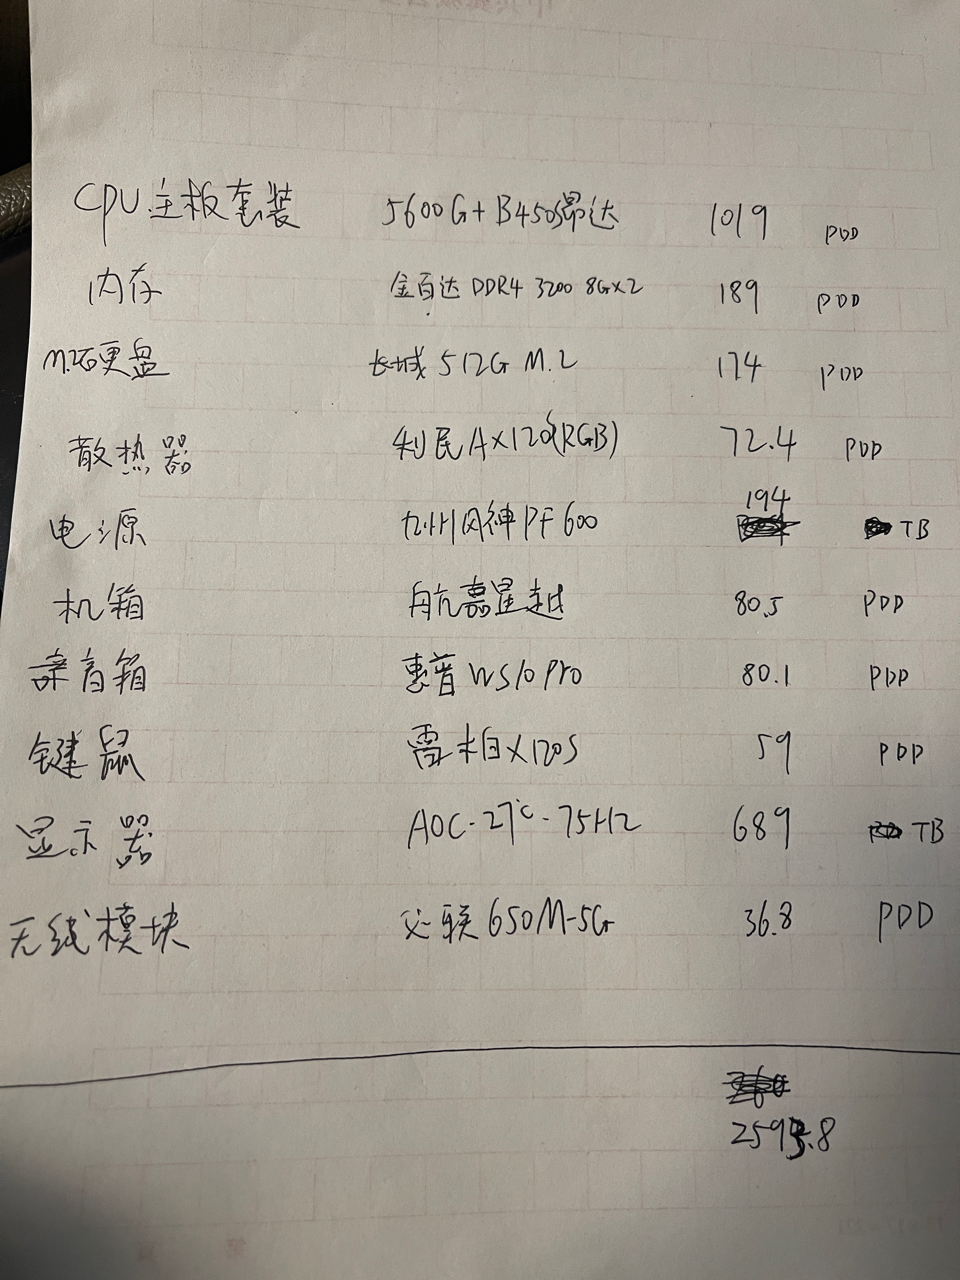 CPU主板套装 5600G+B450S昂达 1019 PDD
内存 金百达 DDR4 3200 8G×2 189 PDD
M.2硬盘 长城 512G M.2 174 PDD
散热器 利民AX120(RGB) 72.4 PDD
电源 九州风神PF600 194 TB
机箱 航嘉星越 80.5 PDD
音箱 惠普WS10 Pro 80.1 PDD
键鼠 雷柏X120S 59 PDD
显示器 AOC-27寸-75Hz 689 TB
无线模块 必联650M-5G 36.8 PDD
2593.8